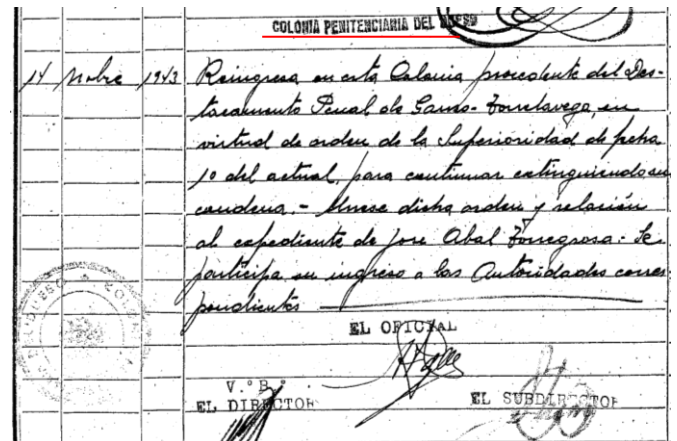 COLONIA PENITENCIARIA DEL DUESO
14 Nobre 1943 Reingresa en esta Colonia procedente del Des-
tacamento Penal de Ganzo-Torrelavega, en
virtud de orden de la Superioridad de fecha
1º del actual, para continuar extinguiendo su
condena.- Unese dicha orden y relación
al expediente de Jose Abal Torregrosa. Se
participa su ingreso a las Autoridades corres
pondientes
EL OFICIAL
V.º B.º
EL DIRECTOR
EL SUBDIRECTOR
DUESO